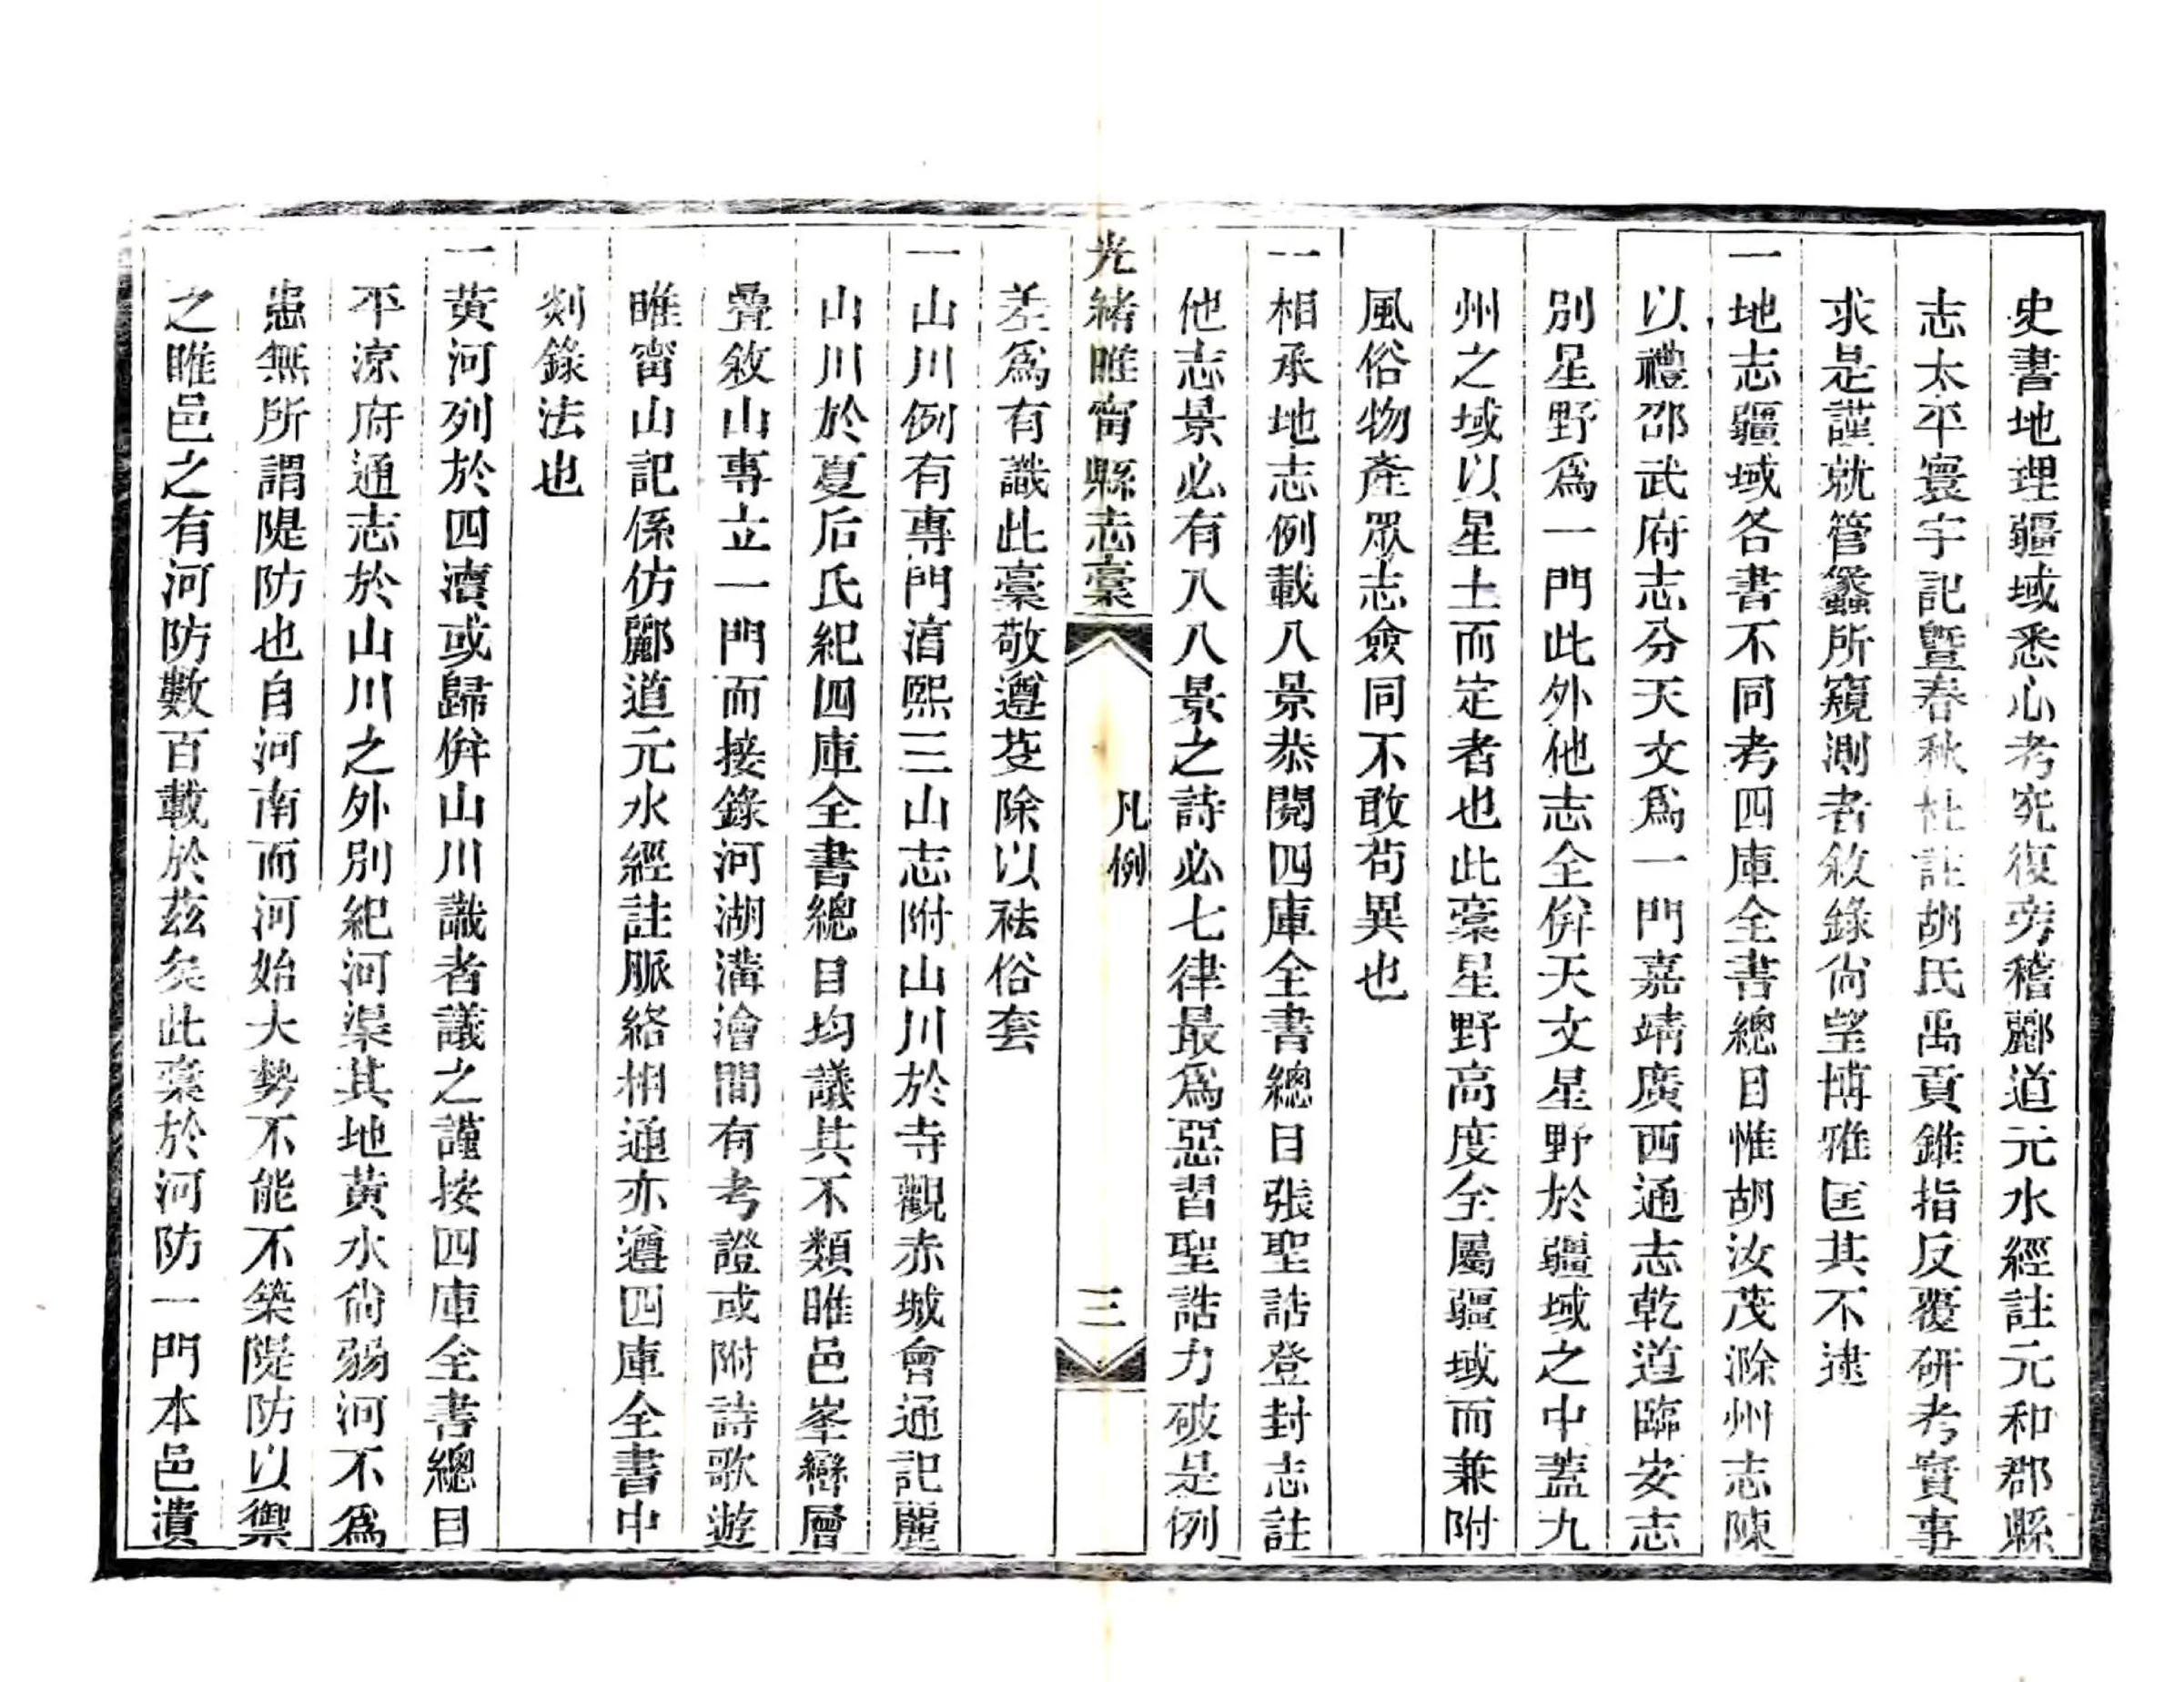 史書地理疆域悉心考究復旁稽酈道元水經註元和郡縣
志太平寰宇記曁春秋杜註胡氏禹貢錐指反覆研考實事
求是謹就管蠡所窺測者敘錄尙望博雅匡其不逮
一地志疆域各書不同考四庫全書總目惟胡汝茂滁州志陳
以禮邵武府志分天文爲一門嘉靖廣西通志乾道臨安志
別星野爲一門此外他志全倂天文星野於疆域之中蓋九
州之域以星土而定者也此稾星野高度全屬疆域而兼附
風俗物產眾志僉同不敢苟異也
一相承地志例載八景恭閱四庫全書總目張聖誥登封志註
他志景必有八八景之詩必七律最爲惡習聖誥力破是例
光緒睢甯縣志稾
凡例
三
差爲有識此稾敬遵芟除以祛俗套
一山川例有專門淳熙三山志附山川於寺觀赤城會通記麗
山川於夏后氏紀四庫全書總目均議其不類睢邑峯巒層
疊敘山專立一門而接錄河湖溝澮間有考證或附詩歌遊
睢甯山記係仿酈道元水經註脈絡相通亦遵四庫全書中
剡錄法也
一黃河列於四瀆或歸倂山川識者議之謹按四庫全書總目
平涼府通志於山川之外別紀河渠其地黃水尙弱河不爲
患無所謂隄防也自河南而河始大勢不能不築隄防以禦
之睢邑之有河防數百載於茲矣此稾於河防一門本邑潰